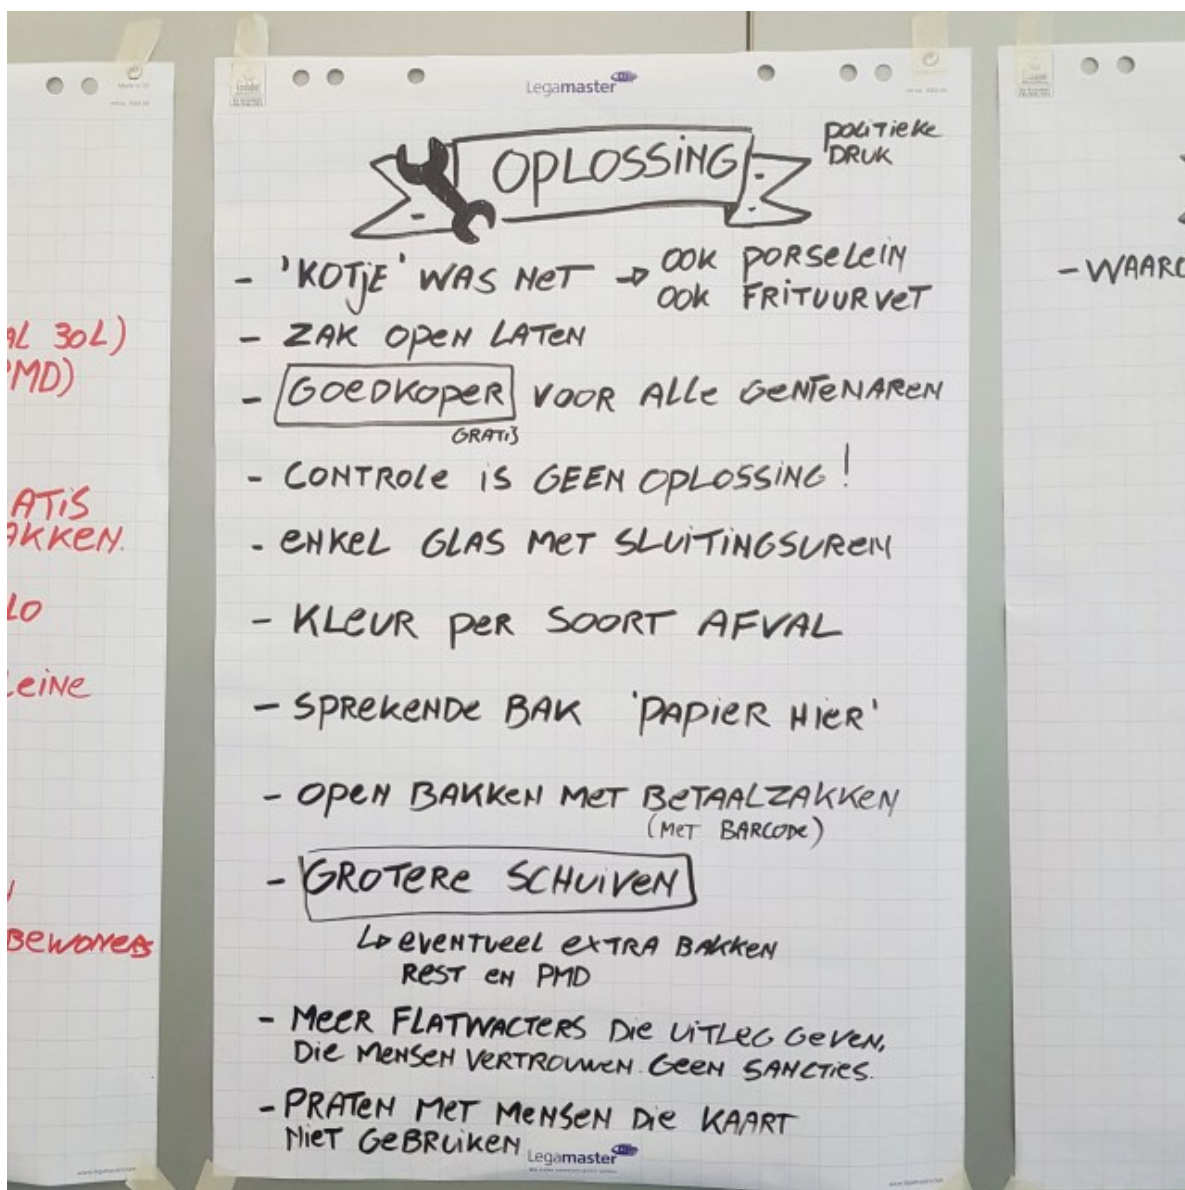 Legamaster
POLITIEKE
DRUK
OPLOSSING
- 'KOTJE' WAS NET → OOK PORSELEIN
OOK FRITUURVET
- ZAK OPEN LATEN
- GOEDKOPER VOOR ALLE GENTENAREN
GRATIS
- CONTROLE IS GEEN OPLOSSING!
- ENKEL GLAS MET SLUITINGSUREN
- KLEUR PER SOORT AFVAL
- SPREKENDE BAK 'PAPIER HIER'
- OPEN BAKKEN MET BETAALZAKKEN
(MET BARCODE)
- GROTERE SCHUIVEN
↳ EVENTUEEL EXTRA BAKKEN
REST EN PMD
- MEER FLATWACTERS DIE UITLEG GEVEN,
DIE MENSEN VERTROUWEN. GEEN SANCTIES.
- PRATEN MET MENSEN DIE KAART
NIET GEBRUIKEN
Legamaster
AL 30L)
PMD)
ATIS
AKKEN.
LO
LEINE
BEWONERS
- WAARO